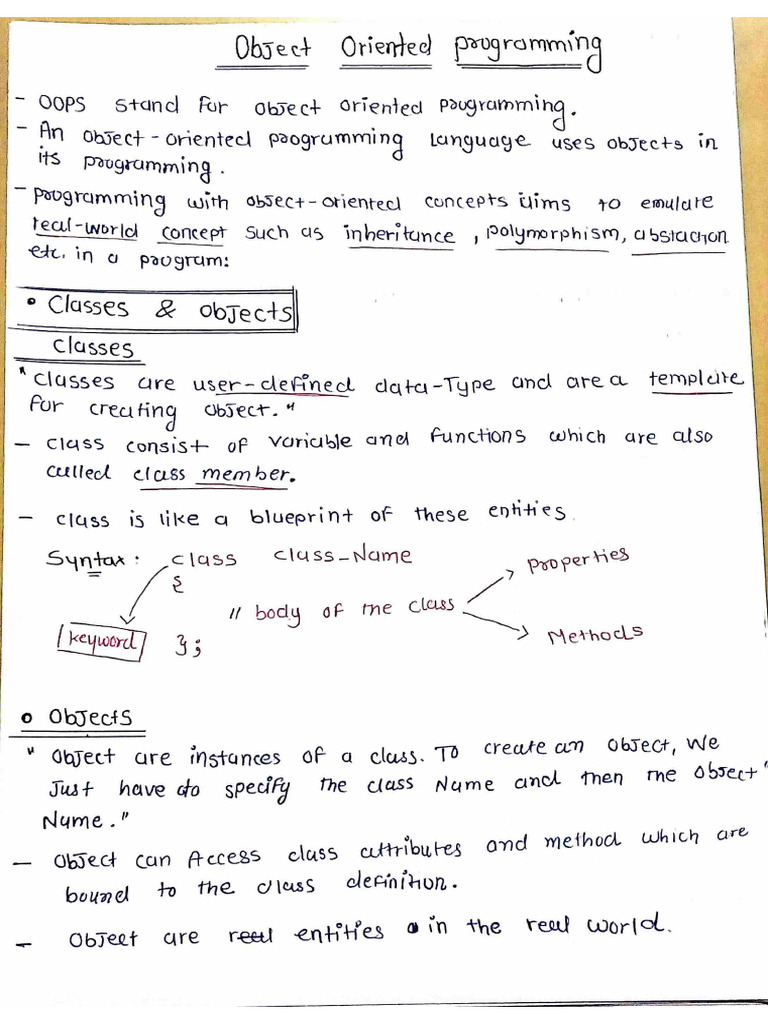 Object Oriented programming
- OOPS stand for object oriented programming.
- An object-oriented programming language uses objects in
its programming.
- programming with object-oriented concepts aims to emulate
real-world concept such as inheritance, polymorphism, abstaction
etc. in a program:
• Classes & objects
classes
"classes are user-defined data-Type and are a template
for creating object."
- class consist of variable and functions which are also
called class member.
- class is like a blueprint of these entities
Syntax: class class-Name
{
Properties
// body of the class
Methods
keyword
};
• Objects
" Object are instances of a class. To create an object, We
Just have to specify the class Name and then the Object"
Name."
- Object can Access class attributes and method which are
bound to the class definition.
- Object are real entities in the real world.